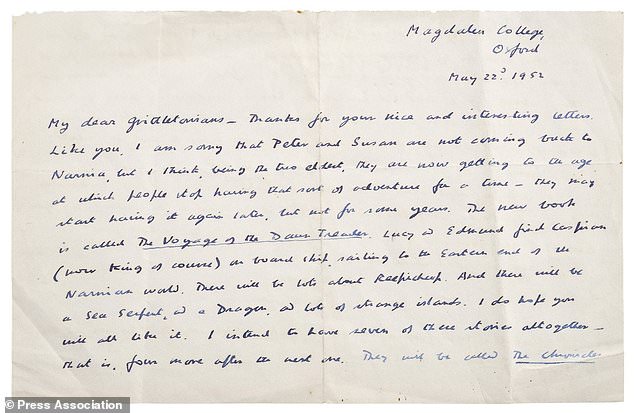 Magdalen College,
Oxford
May 22d. 1952
My dear Grittletonians – Thanks for your nice and interesting letters.
Like you, I am sorry that Peter and Susan are not coming back to
Narnia, but I think, being the two eldest, they are now getting to the age
at which people stop having that sort of adventure for a time – they may
start having it again later, but not for some years. The new book
is called The Voyage of the Dawn Treader. Lucy & Edmund find Caspian
(now King of course) on board ship, sailing to the Eastern end of the
Narnian world. There will be lots about Reepicheep. And there will be
a Sea Serpent, & a Dragon, & lots of strange islands. I do hope you
will all like it. I intend to have seven of these stories altogether –
that is, four more after the next one. They will be called The Chronicles
© Press Association